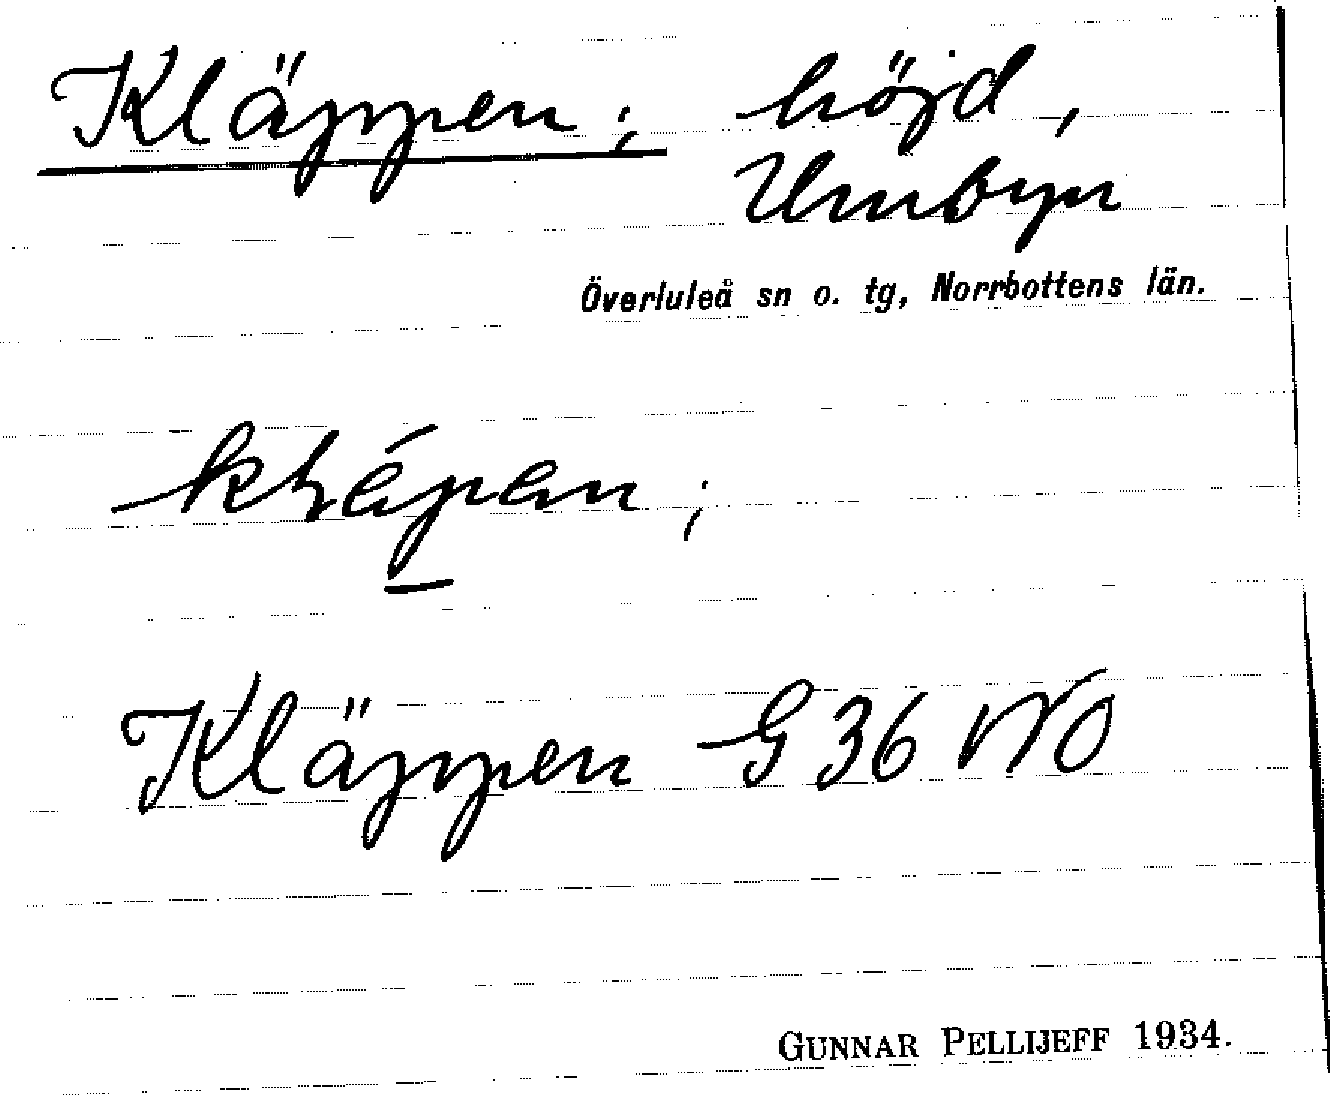 Kläppen; höjd,
Unbyn
Överluleå sn o. tg, Norrbottens län.
Kläppen G 36 NO
GUNNAR PELLIJEFF 1934.